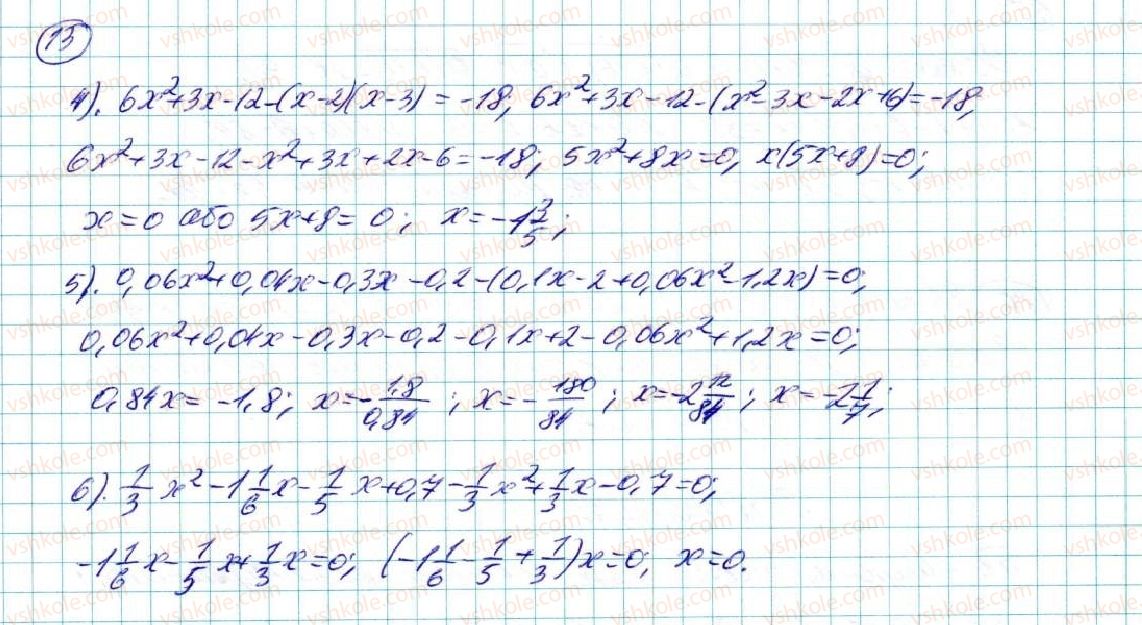 13
4). 6x²+3x-12-(x-2)(x-3) = -18; 6x²+3x-12-(x²-3x-2x+6)=-18;
6x²+3x-12-x²+3x+2x-6=-18; 5x²+8x=0; x(5x+8)=0;
x=0 або 5x+8=0; x=-1 3/5;
5). 0,06x²+0,04x-0,3x-0,2-(0,1x-2+0,06x²-1,2x)=0;
0,06x²+0,04x-0,3x-0,2-0,1x+2-0,06x²+1,2x=0;
0,84x=-1,8; x=-1,8/0,84; x=-180/84; x=-2 12/84; x=-2 1/7;
6). 1/3 x²-1 1/6 x-1/5 x+0,7-1/3 x²+1/3 x-0,7=0;
-1 1/6 x-1/5 x+1/3 x=0; (-1 1/6-1/5+1/3)x=0; x=0.